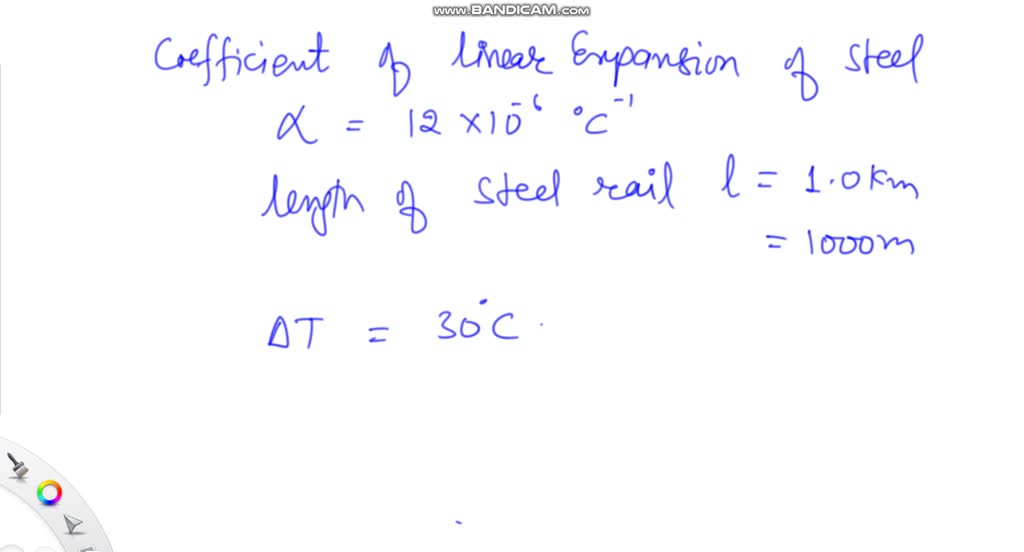 www.BANDICAM.com
Coefficient of linear Expansion of steel
α = 12 × 10⁻⁶ °C⁻¹
length of steel rail l = 1.0 Km
= 1000m
ΔT = 30°C